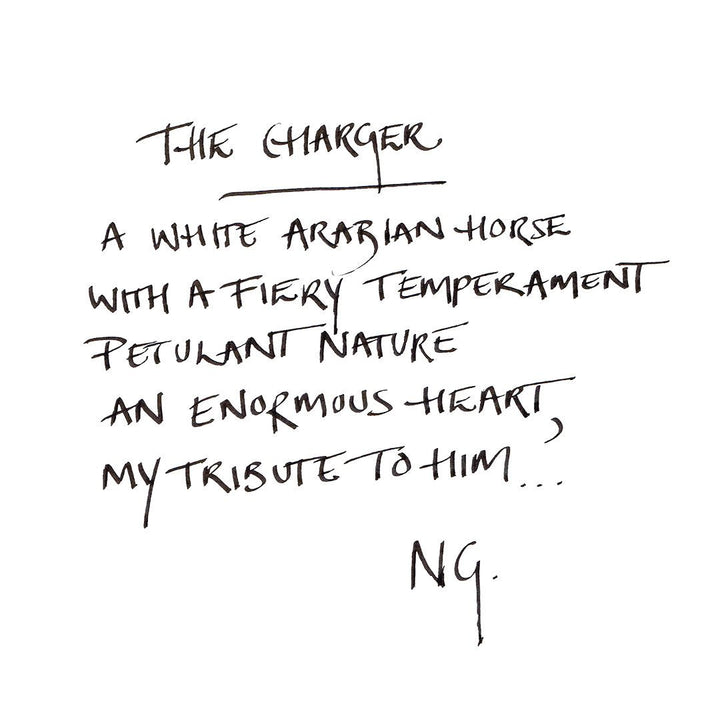 THE CHARGER
A WHITE ARABIAN HORSE
WITH A FIERY TEMPERAMENT
PETULANT NATURE
AN ENORMOUS HEART,
MY TRIBUTE TO HIM...
NG.